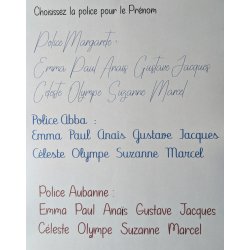 Choisissez la police pour le Prénom
Police Margarite :
Emma Paul Anaïs Gustave Jacques
Céleste Olympe Suzanne Marcel
Police Abba :
Emma Paul Anaïs Gustave Jacques
Céleste Olympe Suzanne Marcel
Police Aubanne :
Emma Paul Anaïs Gustave Jacques
Céleste Olympe Suzanne Marcel